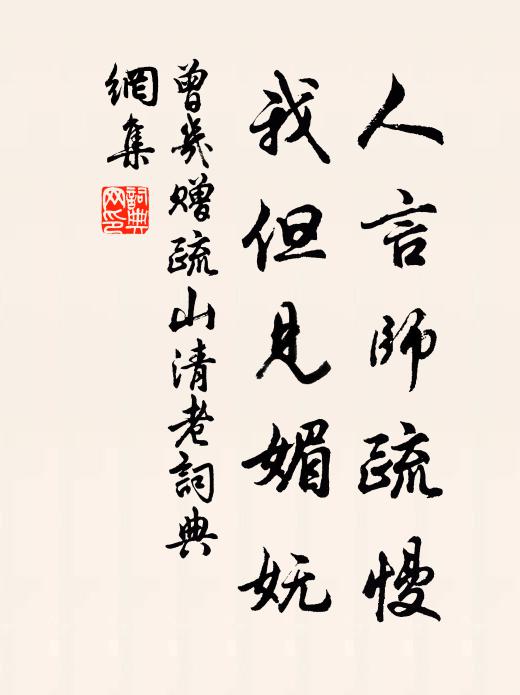 人言師疏慢
我但見媚妩
曾幾贈疏山清老詞典
網集
詞典網印